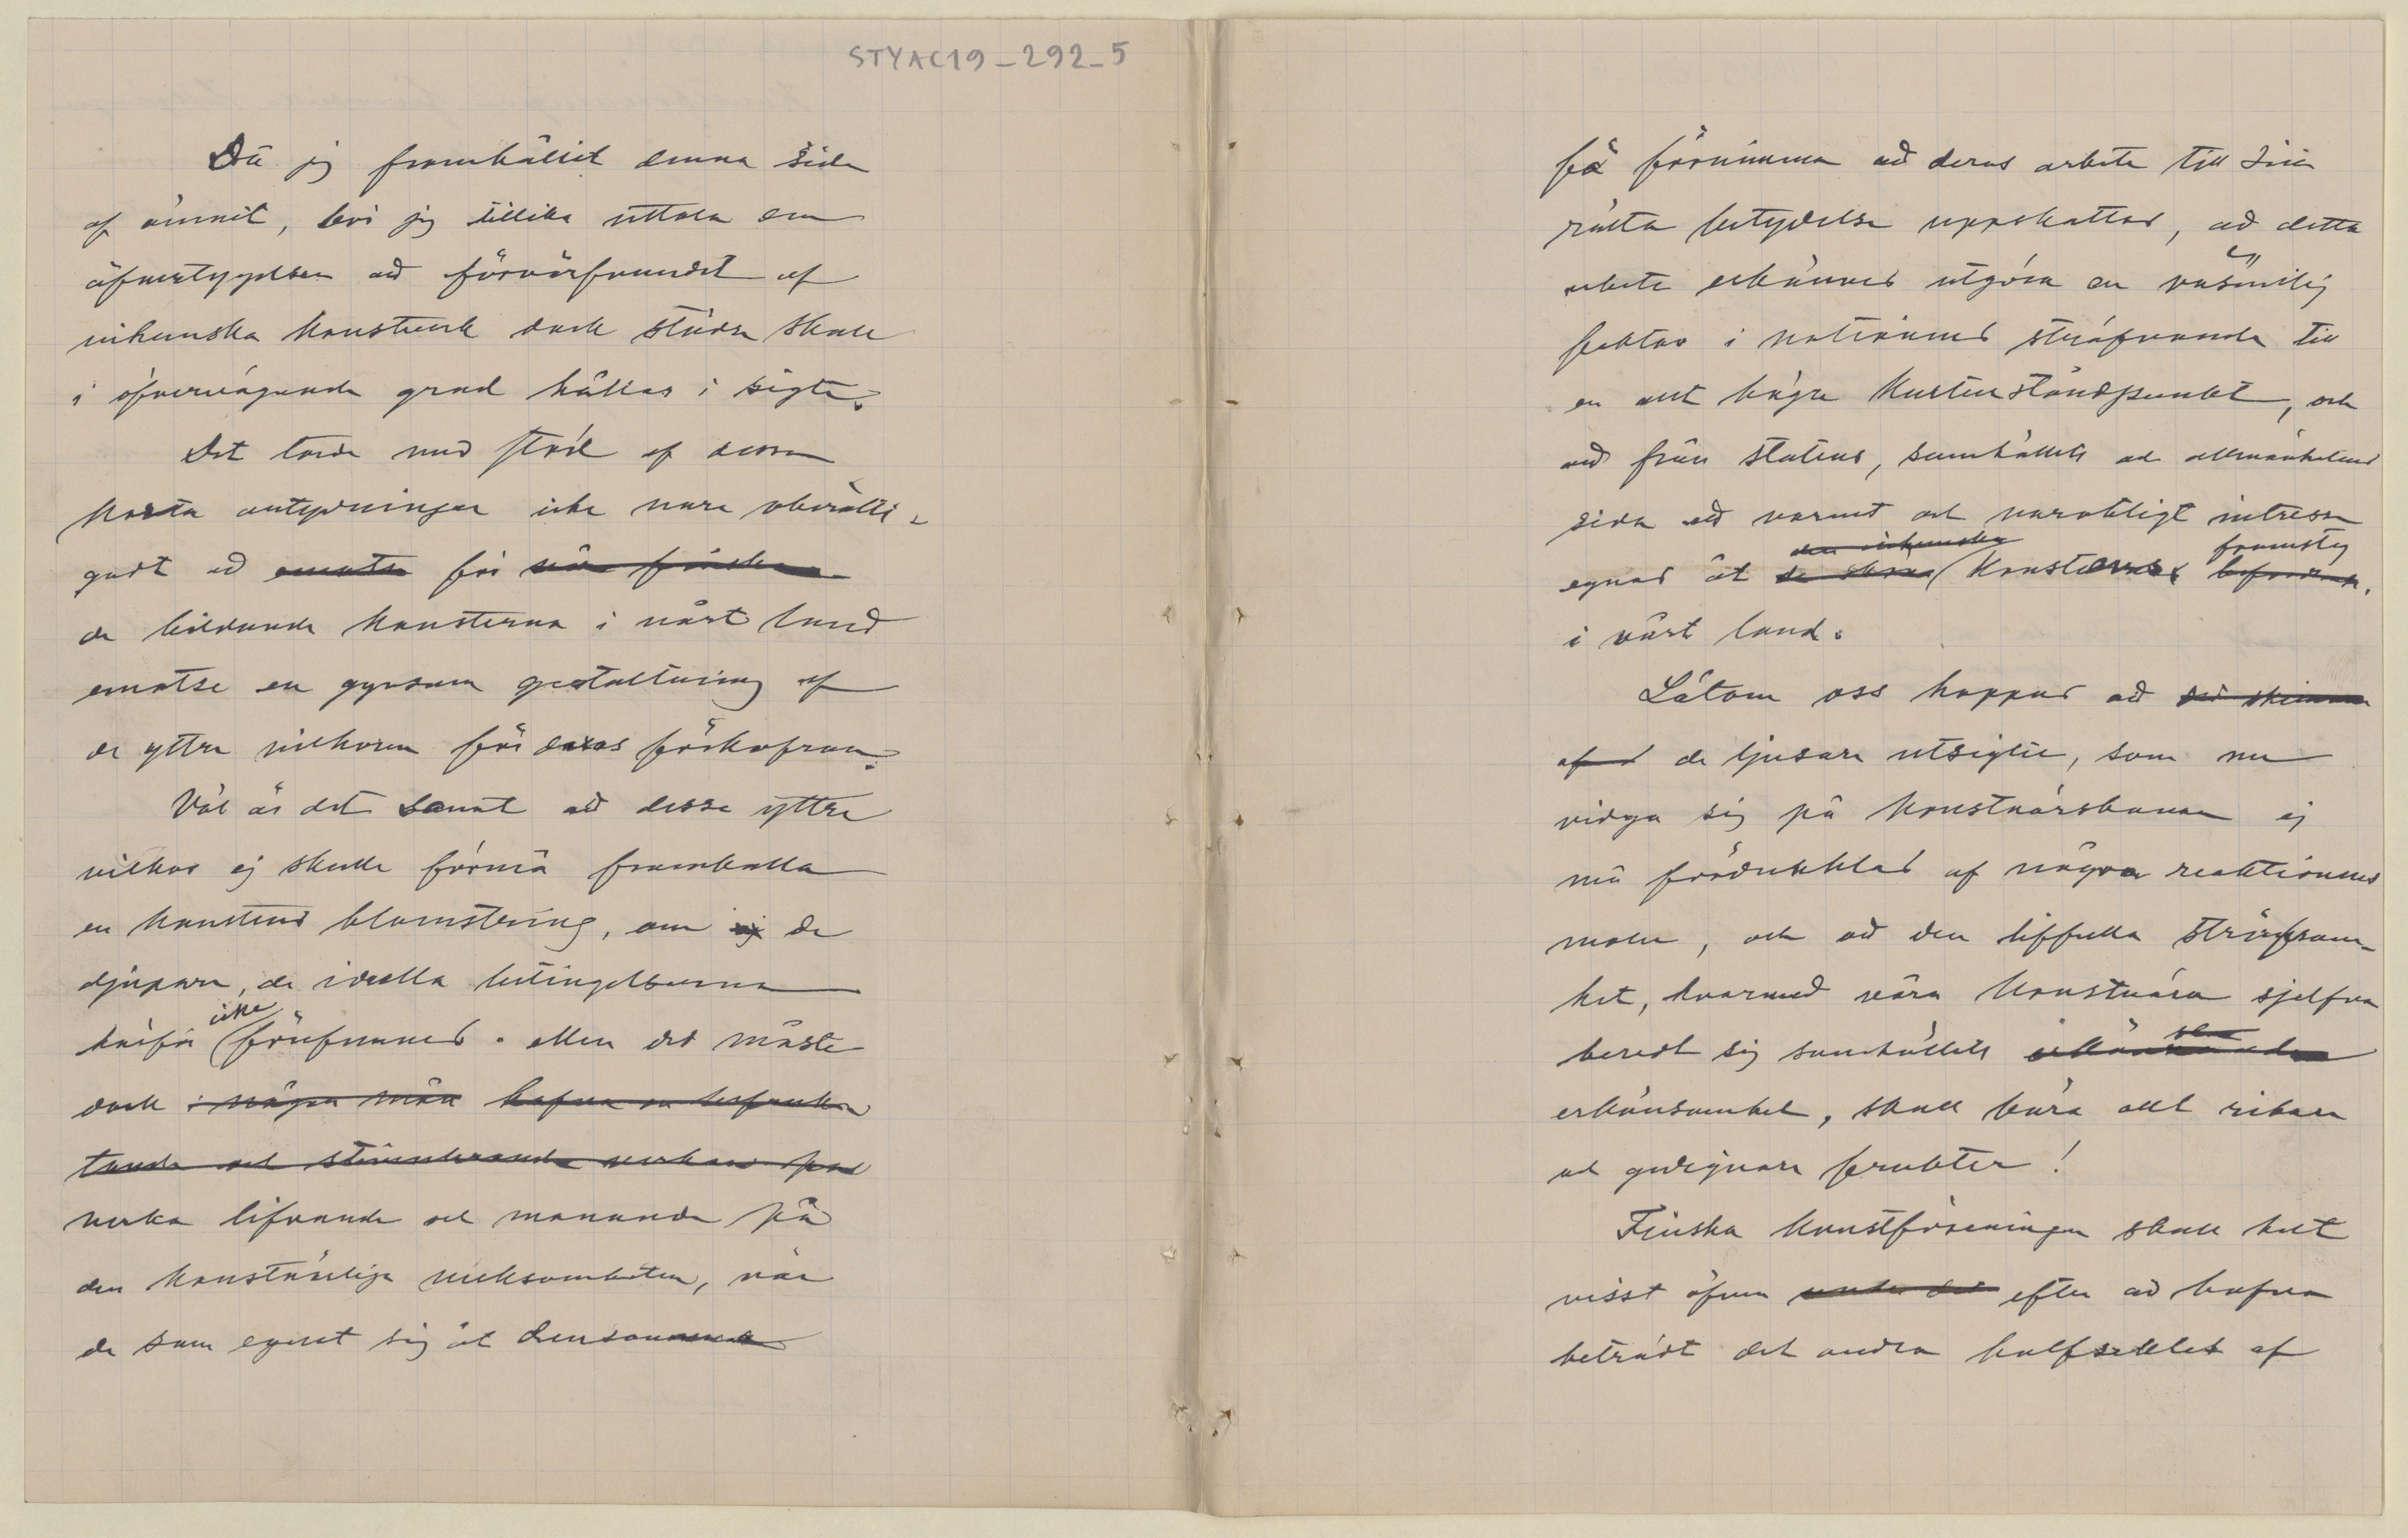 STYAC19_292_5
Då jag framhållit denna sida
af ämnet, bör jag tillika uttala den
öfvertygelsen att förvärfvandet af
inhemska konstverk dock städse skall
i öfvervägande grad hållas i sigte.
Det torde med stöd af dessa
korta antydningar icke vara oberätti-
gadt att emotse för
de bildande konsterna i vårt land
emotse en gynsam gestaltning af
de yttre vilkoren för deras förkofran.
Väl är det sannt att dessa yttre
vilkor ej skulle förmå framkalla
en konstens blomstring, om ej de
djupare, de ideella betingelserna
härför icke förefunnes. Men det måste
dock i någon mån hafva en
och stimulerande verkan på
verka lifvande och manande på
den konstnärliga verksamheten, när
de som egnat sig åt densamma
få förnimma att deras arbete till sin
rätta betydelse uppskattas, att detta
arbete erkännes utgöra en väsentlig
faktor i nationens sträfvande till
en allt högre kulturståndpunkt, och
att från statens, samhällets och allmänhetens
sida ett varmt och varaktigt intresse
den inhemska framsteg
egnas åt de sköna konsternas befordran.
i vårt land.
Låtom oss hoppas att
af de ljusare utsigter, som nu
vidga sig på konstnärsbanan ej
må fördunklas af några reaktionens
moln, och att den liffulla sträfsam-
het, hvarmed våra konstnärer sjelfva
beredt sig samhällets
erkänsamhet, skall bära allt rikare
och gedignare frukter!
Finska Konstföreningen skall helt
visst äfven under det efter att hafva
beträdt det andra halfseklet af